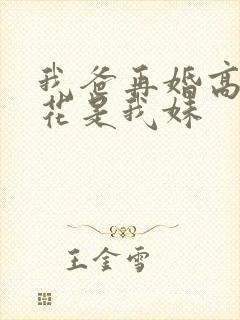 我爸再婚高
花是我妹
王金雪